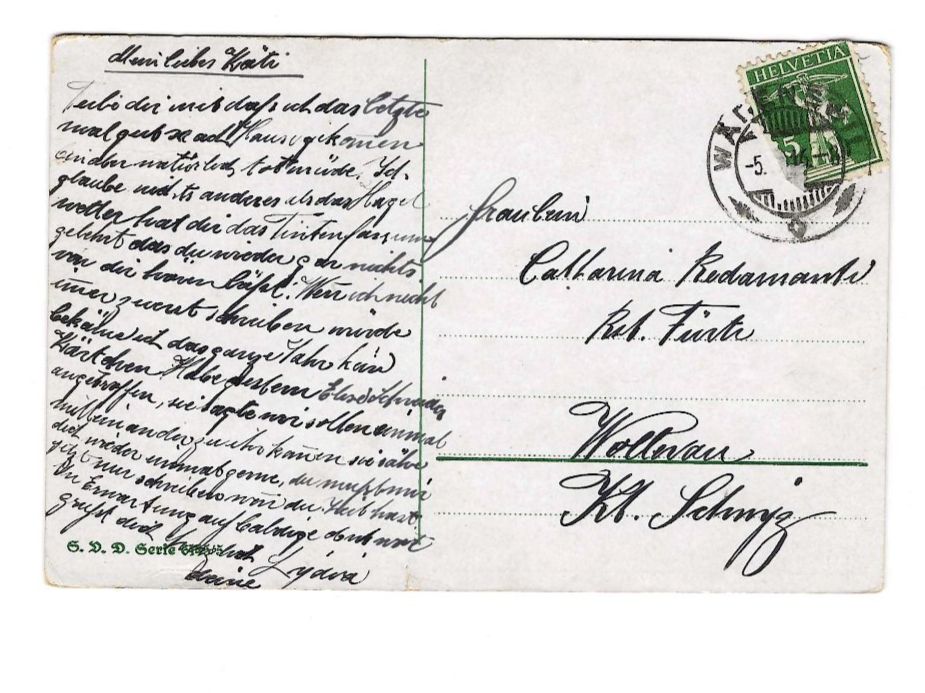 Mein liebes Käti
Teile dir mit dass ich das letzte
mal gut nach Hause gekomen
bin aber natürlich totmüde. Ich
glaube nichts anderes als das Hagel
wetter hat dir das Tintenfass um
gekehrt dass du wieder gar nichts
von dir hören läs̈st. Wen ich nicht
imer zuerst schreiben würde
bekäme ich das ganze Jahr kein
Kärtchen. Habe gestern Elise Schneider
angetroffen, sie sagte wir sollen einmal
miteinander zu ihr kommen sie sähe
dich wieder einmal gerne, du musst mir
jetzt nur schreiben wen du Zeit hast
In Erwartung auf baldige Antwort
grüsst dich
deine Lydia
S. V. D. Serie
HELVETIA
5
WÄDENSWIL
-5.
Fräulein
Catharina Redamante
Rst. Fürti
Wollerau
Kt. Schwyz